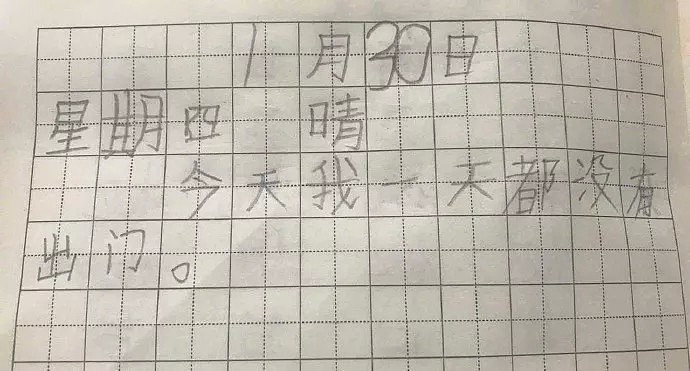 1月30日
星期四 晴
今天我一天都没有
出门。